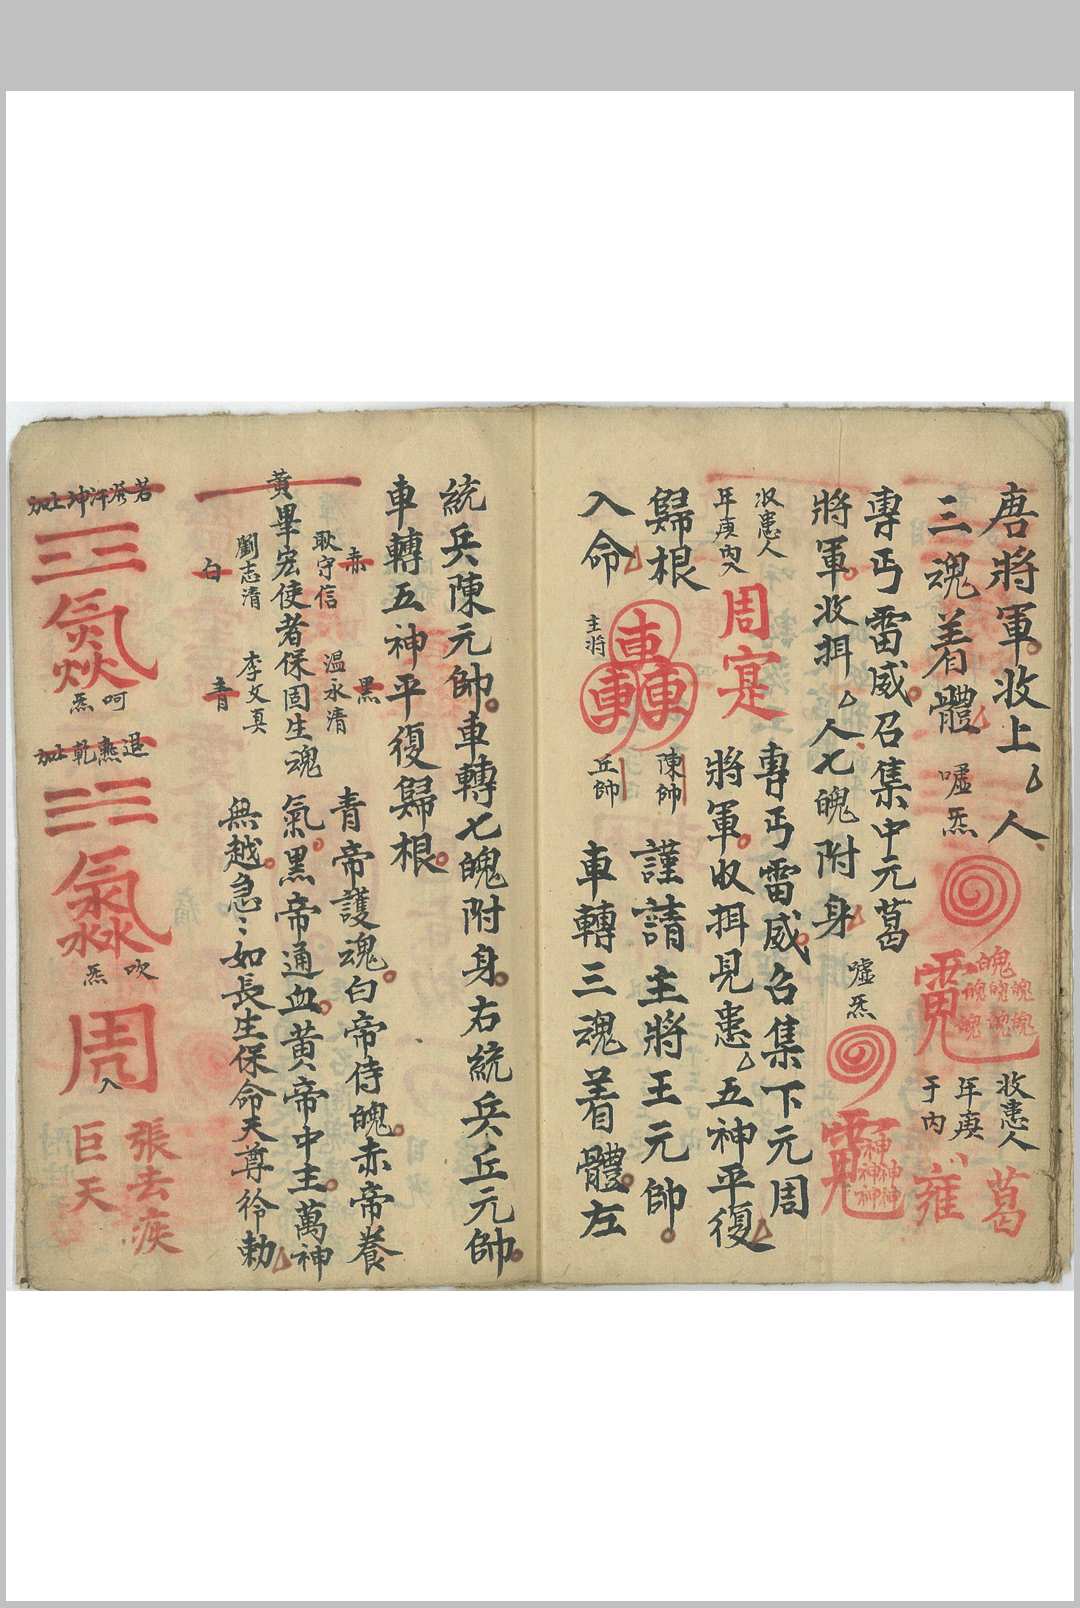 唐將軍收上厶人
三魂着體
嘘炁
收患人
年庚
于內
葛
雍
專丐雷威召集中元葛
將軍收押厶人七魄附身
嘘炁
收患人
年庚內
周
寔
專丐雷威召集下元周
將軍收押見患厶五神平復
歸根
陳帥
謹請主將王元帥
入命
主將
丘帥
車轉三魂着體左
統兵陳元帥車轉七魄附身右統兵丘元帥
車轉五神平復歸根
赤
耿守信
黑
温永清
黃
畢宏使者保固生魂
白
劉志清
青
李文真
青帝護魂白帝侍魄赤帝養
氣黑帝通血黃帝中主萬神
無越急〻如長生保命天尊衿勅
若發汗坤上加
呵
炁
退燕乾上加
吹
炁
周
入
張去疾
巨天